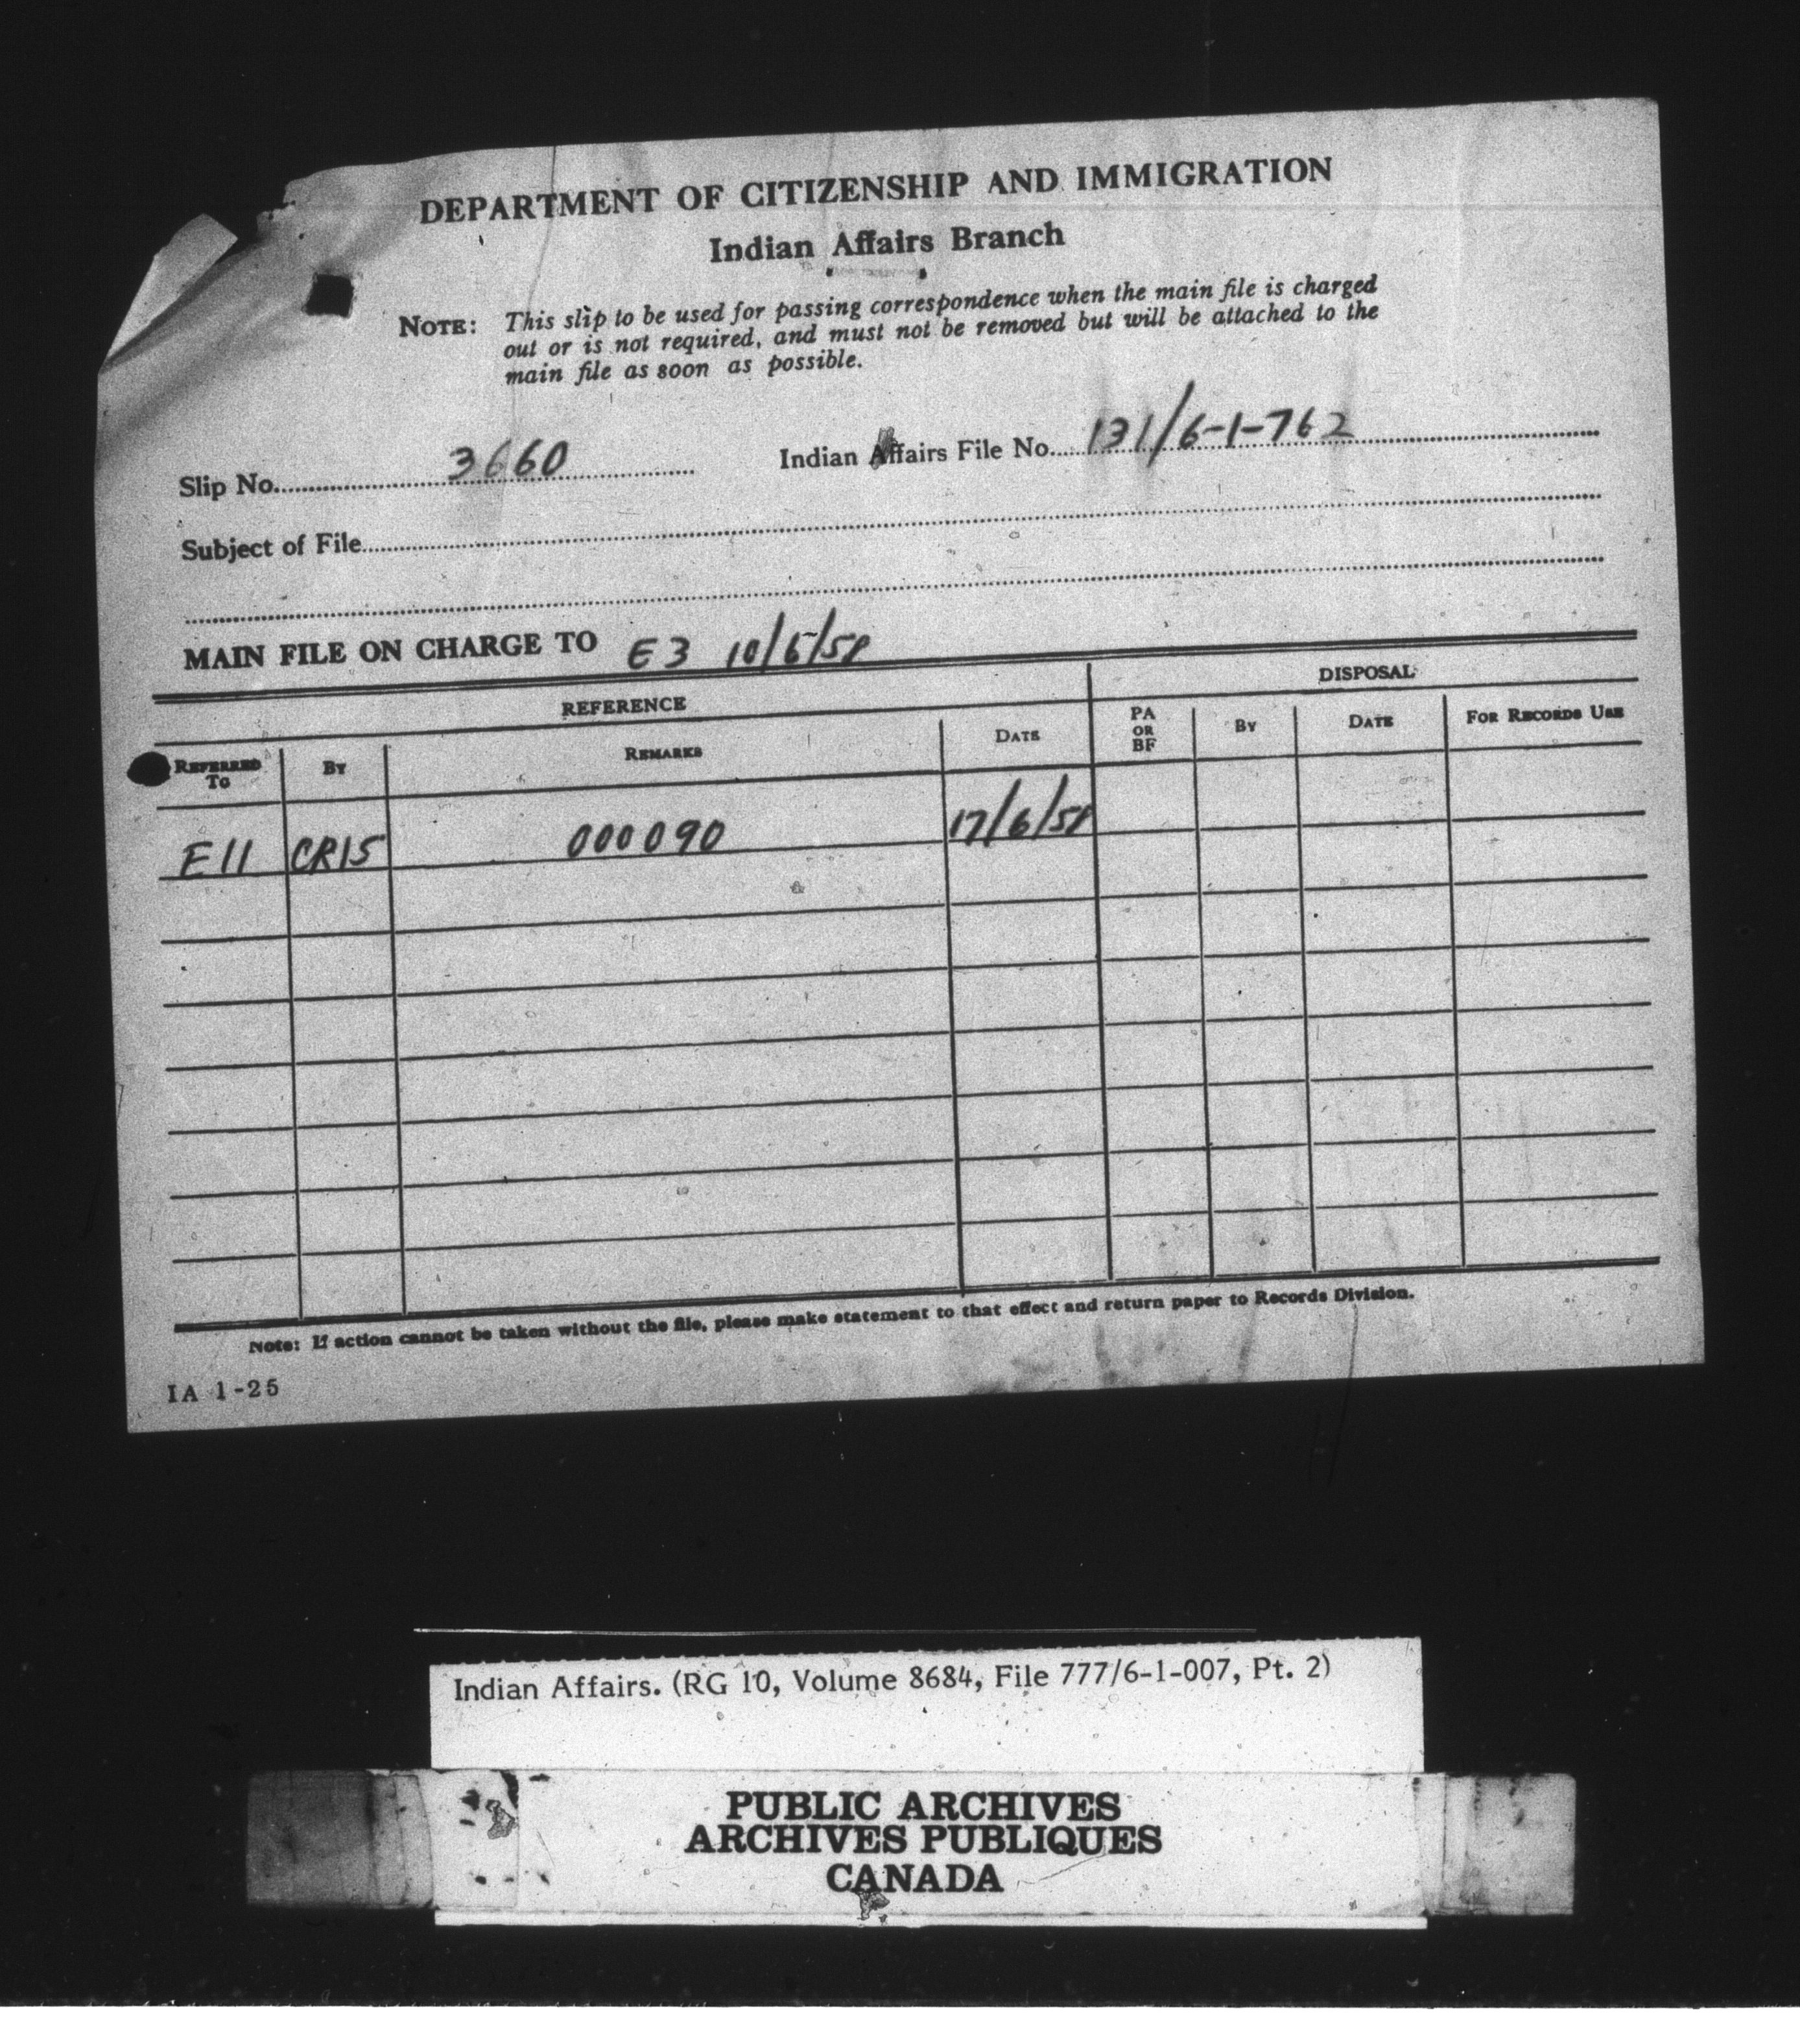 DEPARTMENT OF CITIZENSHIP AND IMMIGRATION
Indian Affairs Branch
NOTE: This slip to be used for passing correspondence when the main file is charged
out or is not required, and must not be removed but will be attached to the
main file as soon as possible.
Slip No. 3660 Indian Affairs File No. 131/6-1-762
Subject of File
MAIN FILE ON CHARGE TO E3 10/6/58
REFERENCE DISPOSAL
REFERRED TO BY REMARKS DATE PA OR BF BY DATE FOR RECORDS USE
E11 CR15 000090 17/6/58
Note: If action cannot be taken without the file, please make statement to that effect and return paper to Records Division.
IA 1-25
Indian Affairs. (RG 10, Volume 8684, File 777/6-1-007, Pt. 2)
PUBLIC ARCHIVES
ARCHIVES PUBLIQUES
CANADA